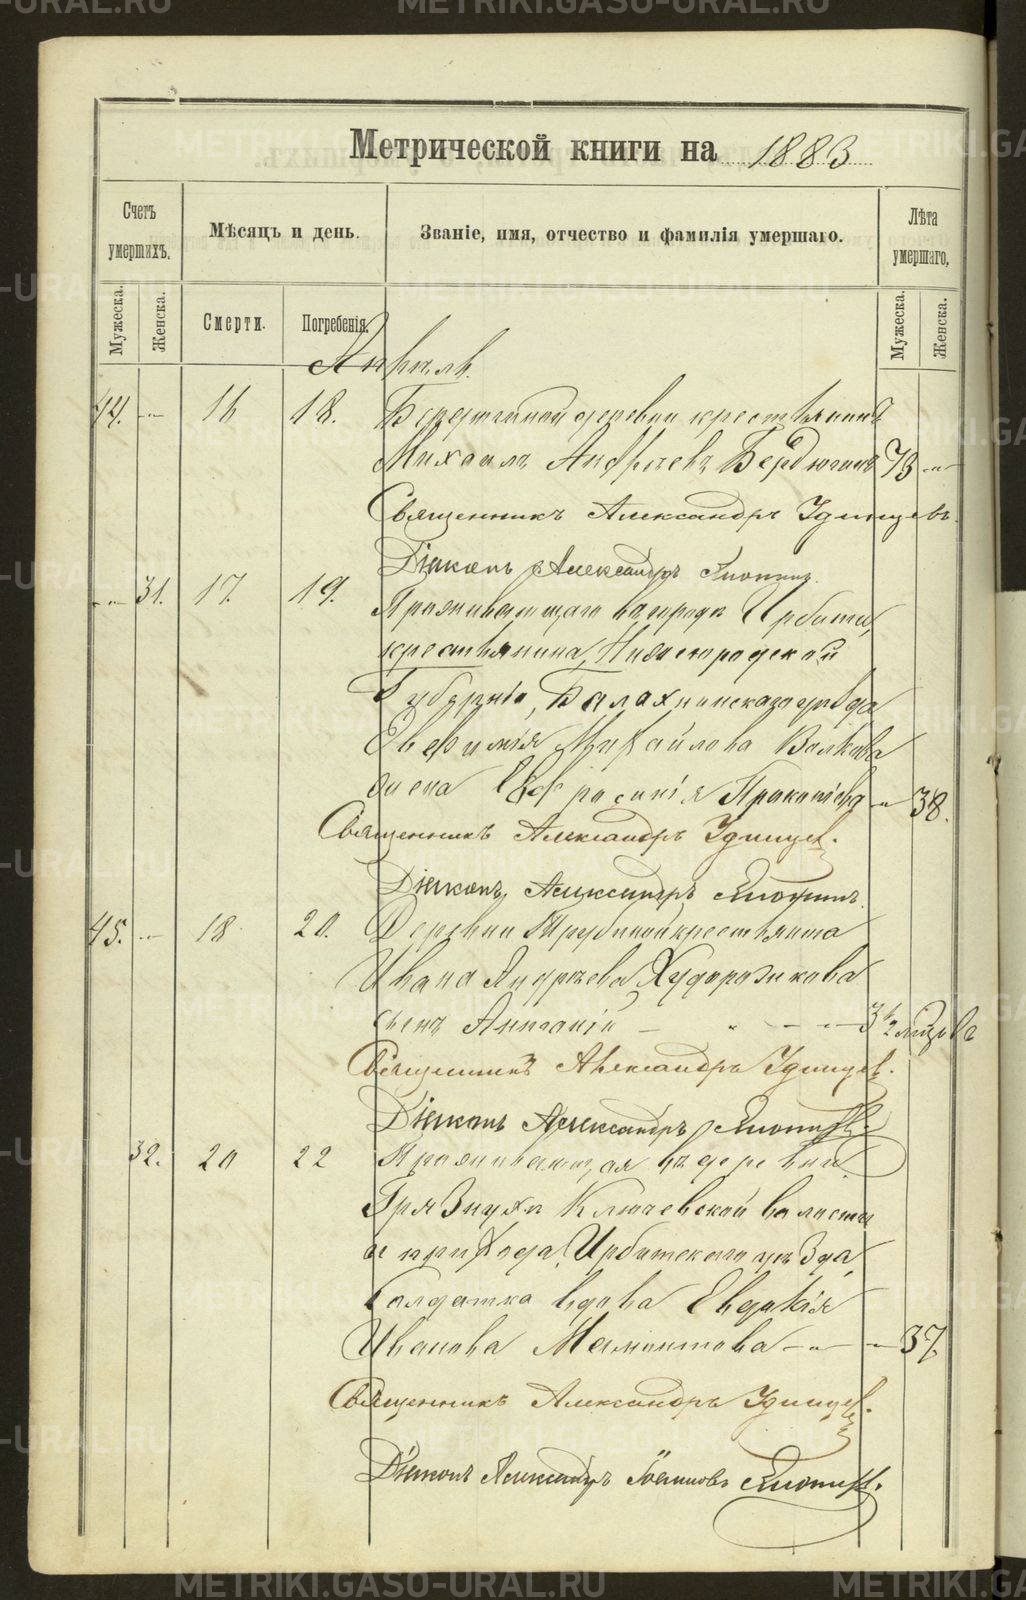 Метрической книги на 1883
Счетъ умершихъ.
Мѣсяцъ и день.
Званіе, имя, отчество и фамилія умершаго.
Лѣта умершаго,
Мужеска.
Женска.
Смерти.
Погребенія.
Мужеска.
Женска.
Апрѣль.
44. 16 18. деревни крестьянинъ
Михаилъ Андреевъ Бердюгинъ 73
Священникъ Александръ Удинцевъ.
Діаконъ Александръ
31. 17. 19. Проживающаго въ городѣ Ирбити,
крестьянина, Нижегородской
Губерніи, Балахнинскаго уѣзда
Евфимія Михайлова Волкова
жена Евфросинія Прокопіева 38.
Священникъ Александръ Удинцев.
Діаконъ Александръ
45. 18 20. Деревни Трубиной крестьянина
Ивана Андреева Худорожкова
сынъ 3 1/2 мѣсяцъ
Священникъ Александръ Удинцев.
Діаконъ Александръ
32. 20 22 Проживающая въ деревни
Грязнухѣ Ключевской волости
и прихода, Ирбитскаго уѣзда,
Солдатка вдова Евдокія
Иванова Мамонтова 37.
Священникъ Александръ Удинцев.
Діаконъ Александръ
METRIKI.GASO-URAL.RU